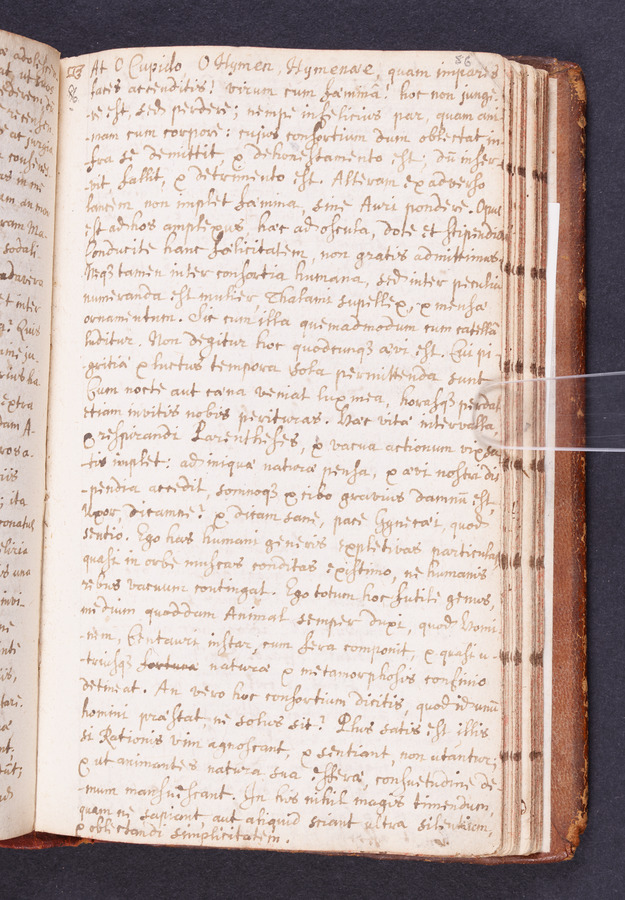 86
113 At O Cupido O Hymen, Hymenæe, quam impares
86
faces accenditis! virum cum fæminâ! hoc non junge-
-re est, sed perdere; nempe infelicius par, quam ani-
-mam cum corpore: cujus consortium dum oblectat in-
-fra se demittit, & dehonestamento est; dũ inser-
-vit, fallit, & detrimento est. Alteram ex adverso
lancem non implet fæmina, sine Auri pondere. Opus
est ad hos amplexus, hæc ad oscula, dote et stipendia
Conducite hanc fælicitatem, non gratis admittimus.
Neqꝫ tamen inter consortia humana, sed inter peculia
numeranda est mulier Thalami supellex, & mensæ
ornamentum. Sic cum illa quemadmodum cum catellâ
luditur. Non degitur hoc quodcunqꝫ ævi est. Cui pi-
-gritia & luctus tempora sola permittenda sunt
Cum nocte aut cæna veniat lux mea, horasqꝫ perdat
etiam invitis nobis perituras. Hæc vitæ intervalla,
& respirandi Parentheses, & vacua actionum
-tis implet: ad iniqua naturæ pensa, & ævi nostri dis
-pendia accedit, somnoqꝫ & cibo gravius damnũ est,
Uxor, dicamne? & dicam sane, pace Gynecæi, quod
sentio. Ego has humani generis expletivas particulas
quasi in orbe muscas conditas existimo, ne humanis
rebus vacuum contingat. Ego totum hoc futile genus,
medium quoddam Animal semper duxi, quod Homi-
-nem, Centauri instar, cum fera componit, & quasi u-
-triusqꝫ fortuna naturæ & metamorphosis confinio
detineat. An vero hoc consortium dicitis, quod id unũ
homini præstat, ne solus sit? Plus satis est illis
si Rationis vim agnoscant, & sentiant, non utantur;
& ut animantes natura sua efferæ, consuetudine de-
-mum mansuescant. In his nihil magis timendum,
quam ne sapiant, aut aliquid sciant ultra silentium,
& oblectandi simplicitatem.